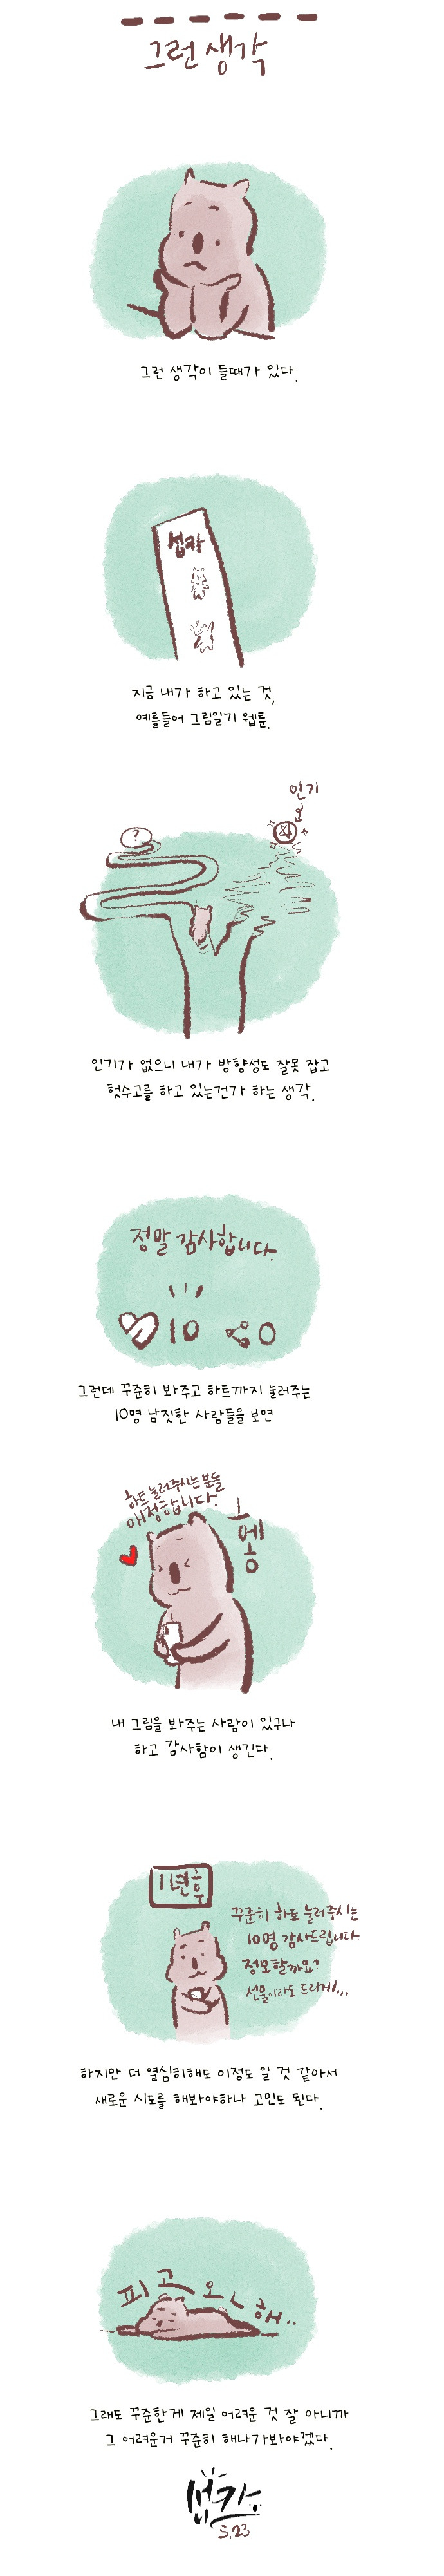 그런 생각
그런 생각이 들때가 있다.
섭카
지금 내가 하고 있는 것,
예를들어 그림일기 웹툰.
인기
?
인기가 없으니 내가 방향성도 잘못 잡고
헛수고를 하고 있는건가 하는 생각.
정말 감사합니다.
10 0
그런데 꾸준히 봐주고 하트까지 눌러주는
10명 남짓한 사람들을 보면
하트 눌러주시는 분들
애정합니다.
내 그림을 봐주는 사람이 있구나
하고 감사함이 생긴다.
1년후
꾸준히 하트 눌러주시는
10명 감사드립니다
정모할까요?
선물이라도 드리게...
하지만 더 열심히해도 이정도 일 것 같아서
새로운 시도를 해봐야하나 고민도 된다.
피곤해..
그래도 꾸준한게 제일 어려운 것 잘 아니까
그 어려운거 꾸준히 해나가봐야겠다.
섭카.
5.23